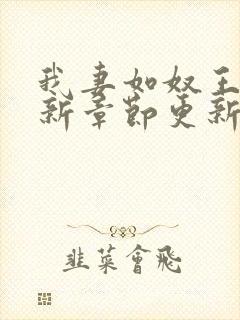 我妻如奴王
新章節更新
韭菜會飛